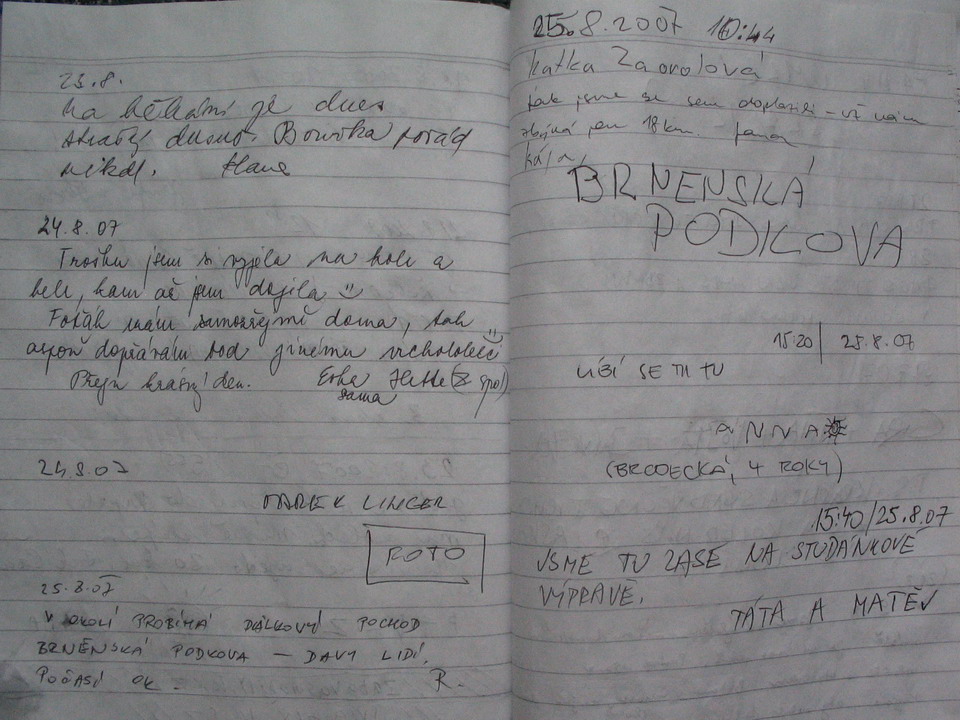 23.8.
Na běhání je dnes
Bowška pořád
nikde. Hana
24.8.07
Trošku jsem si vyjela na kole a
hele, kam až jsem dojela
Foťák mám samozřejmě doma, tak
aspoň dopřávám bod jinému vrchololezci
Přeju krásný den. (z spol)
sama
24.8.07
MAREK LINGER
FOTO
25.8.07
V OKOLÍ PROBÍHÁ DÁLKOVÝ POCHOD
BRNĚNSKÁ PODKOVA — DAVY LIDÍ.
POČASÍ OK. R.
25.8.2007 10:44
Katka Zaoralová
tak jsme se sem doplazili – už nám
zbývá jen 18 km. Jana
Kája
BRNENSKÁ
PODKOVA
15:20 | 25.8.07
LÍBÍ SE TI TU
ANNA
(BRODECKÁ, 4 ROKY)
15:40/25.8.07
JSME TU ZASE NA STUDÁNKOVÉ
VÝPRAVĚ.
TÁTA A MATĚJ